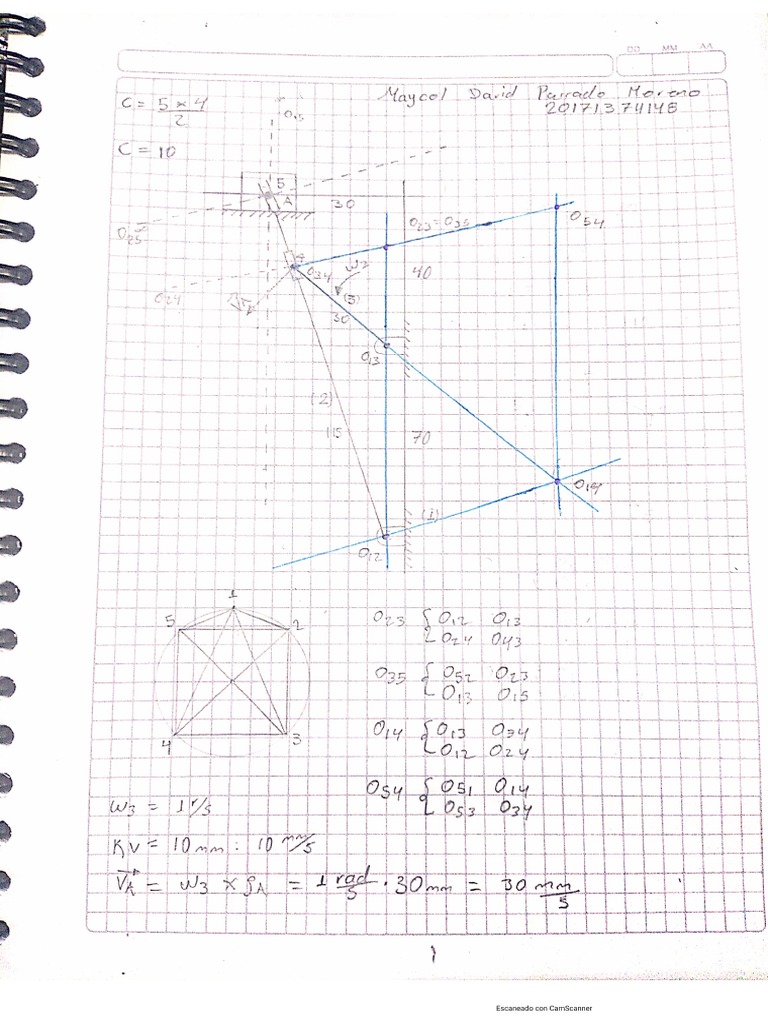 DD MM AA
Maycol David Parrado Moreno
20171374148
C = 5 * 4
2
C = 10
5
A
30
O23=O35
O54
O25 ∞
O34
ω3
40
O24
(3)
30
O13
(2)
115
70
O14
(1)
O12
1
5 2
4 3
O23 { O12 O13
O24 O43
O35 { O52 O23
O13 O15
O14 { O13 O34
O12 O24
O54 { O51 O14
O53 O34
ω3 = 1 r/s
KV = 10 mm : 10 mm/s
VA = ω3 × ρA = 1 rad/s · 30 mm = 30 mm/s
1
Escaneado con CamScanner